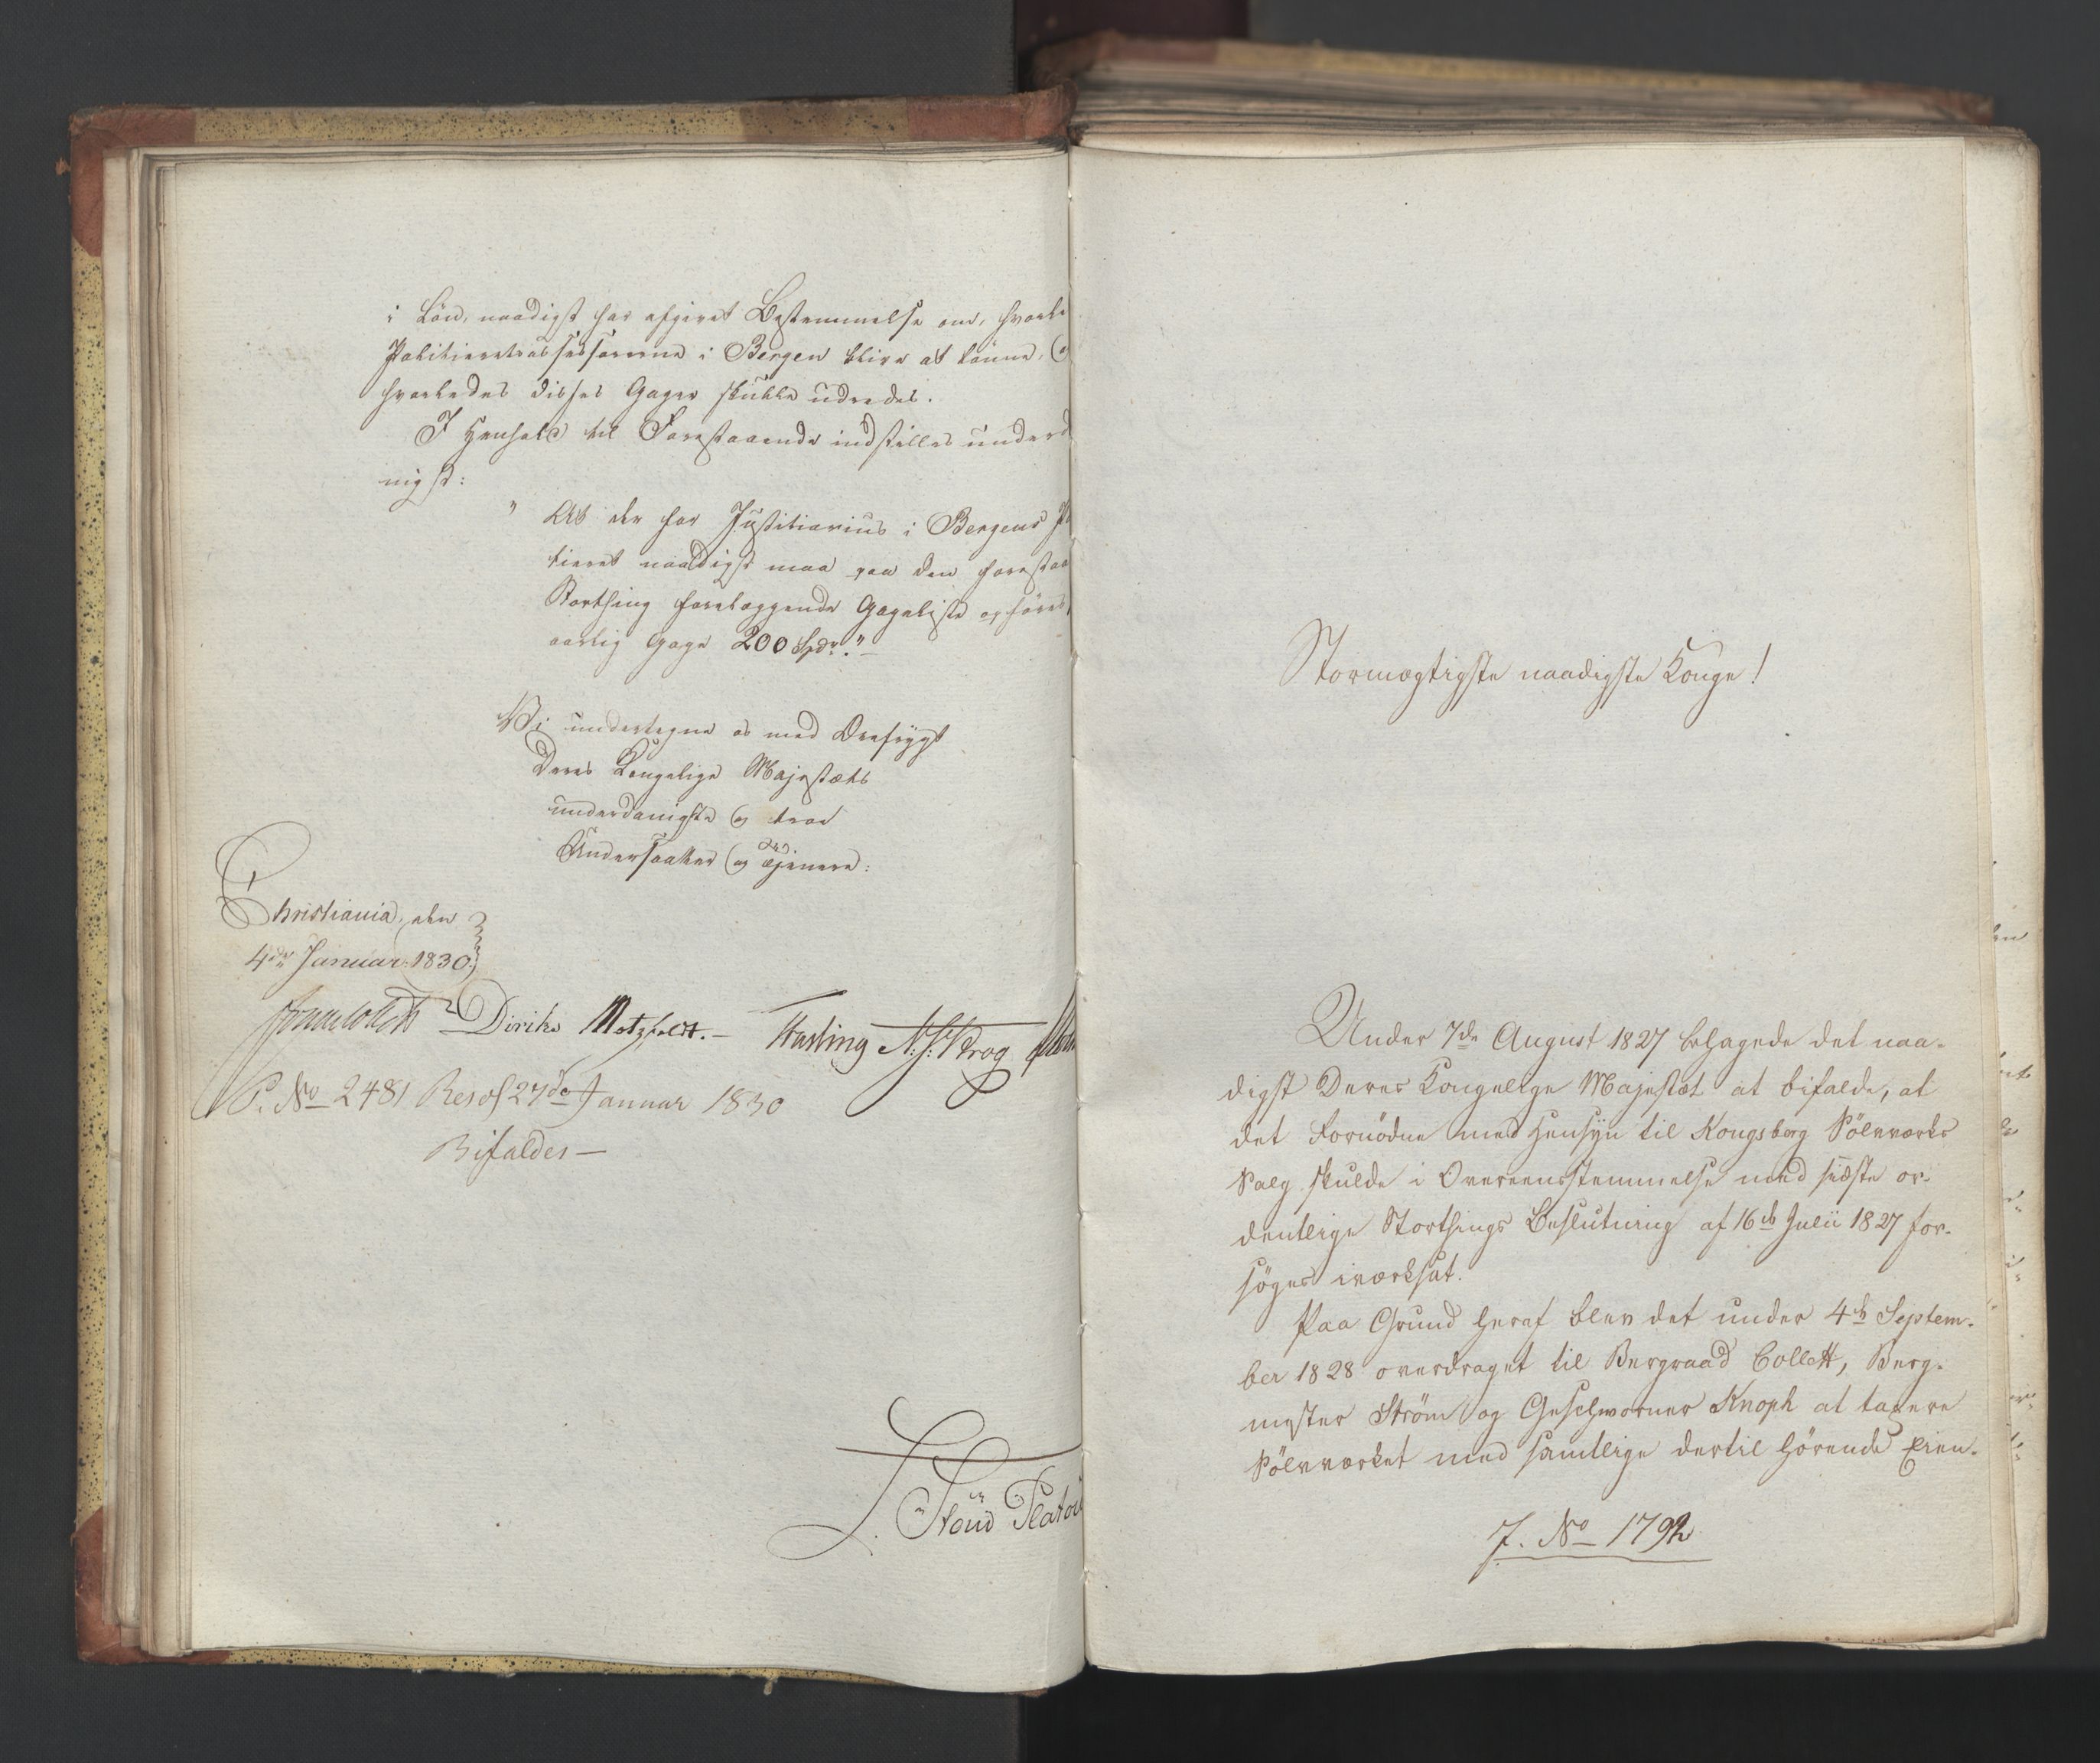 i Løn, naadigst har afgivet Bestemmelse om, hvorle
Politieretsassessorerne i Bergen blive at lønne, og
hvorledes disses Gager skulle udredes.
I Henhold til Forestaaende indstilles underd
nigst:
" At der for Justitiarius i Bergens Po
tieret naadigst maa paa den forestaa
Storthing forelæggende Gageliste opføres,
aarlig Gage 200 Spdr."
Vi undertegne os med Ærefrygt
Deres Kongelige Majestæts
underdanigste og troe
Undersaatter og Tjenere:
Christiania, den
4de Januar 1830.
J Collett Diriks Motzfeldt. Fasting A: S: Krog
P. No 2481 Resol 27de Januar 1830
Bifaldes
Stoud Platou
Stormægtigste naadigste Konge!
Under 7de August 1827 behagede det naa-
digst Deres Kongelige Majestæt at bifalde, at
det Fornødne med Hensyn til Kongsberg Sølvværks
Salg skulde i Overeensstemmelse med sidste or-
dentlige Storthings Beslutning af 16de Julii 1827 for-
søges iværksat.
Paa Grund heraf blev det under 4de Septem-
ber 1828 overdraget til Bergraad Collett, Berg-
mester Strøm og Geschworner Knoph at taxere
Sølvværket med samtlige dertil hørende Eien-
J. No 1792